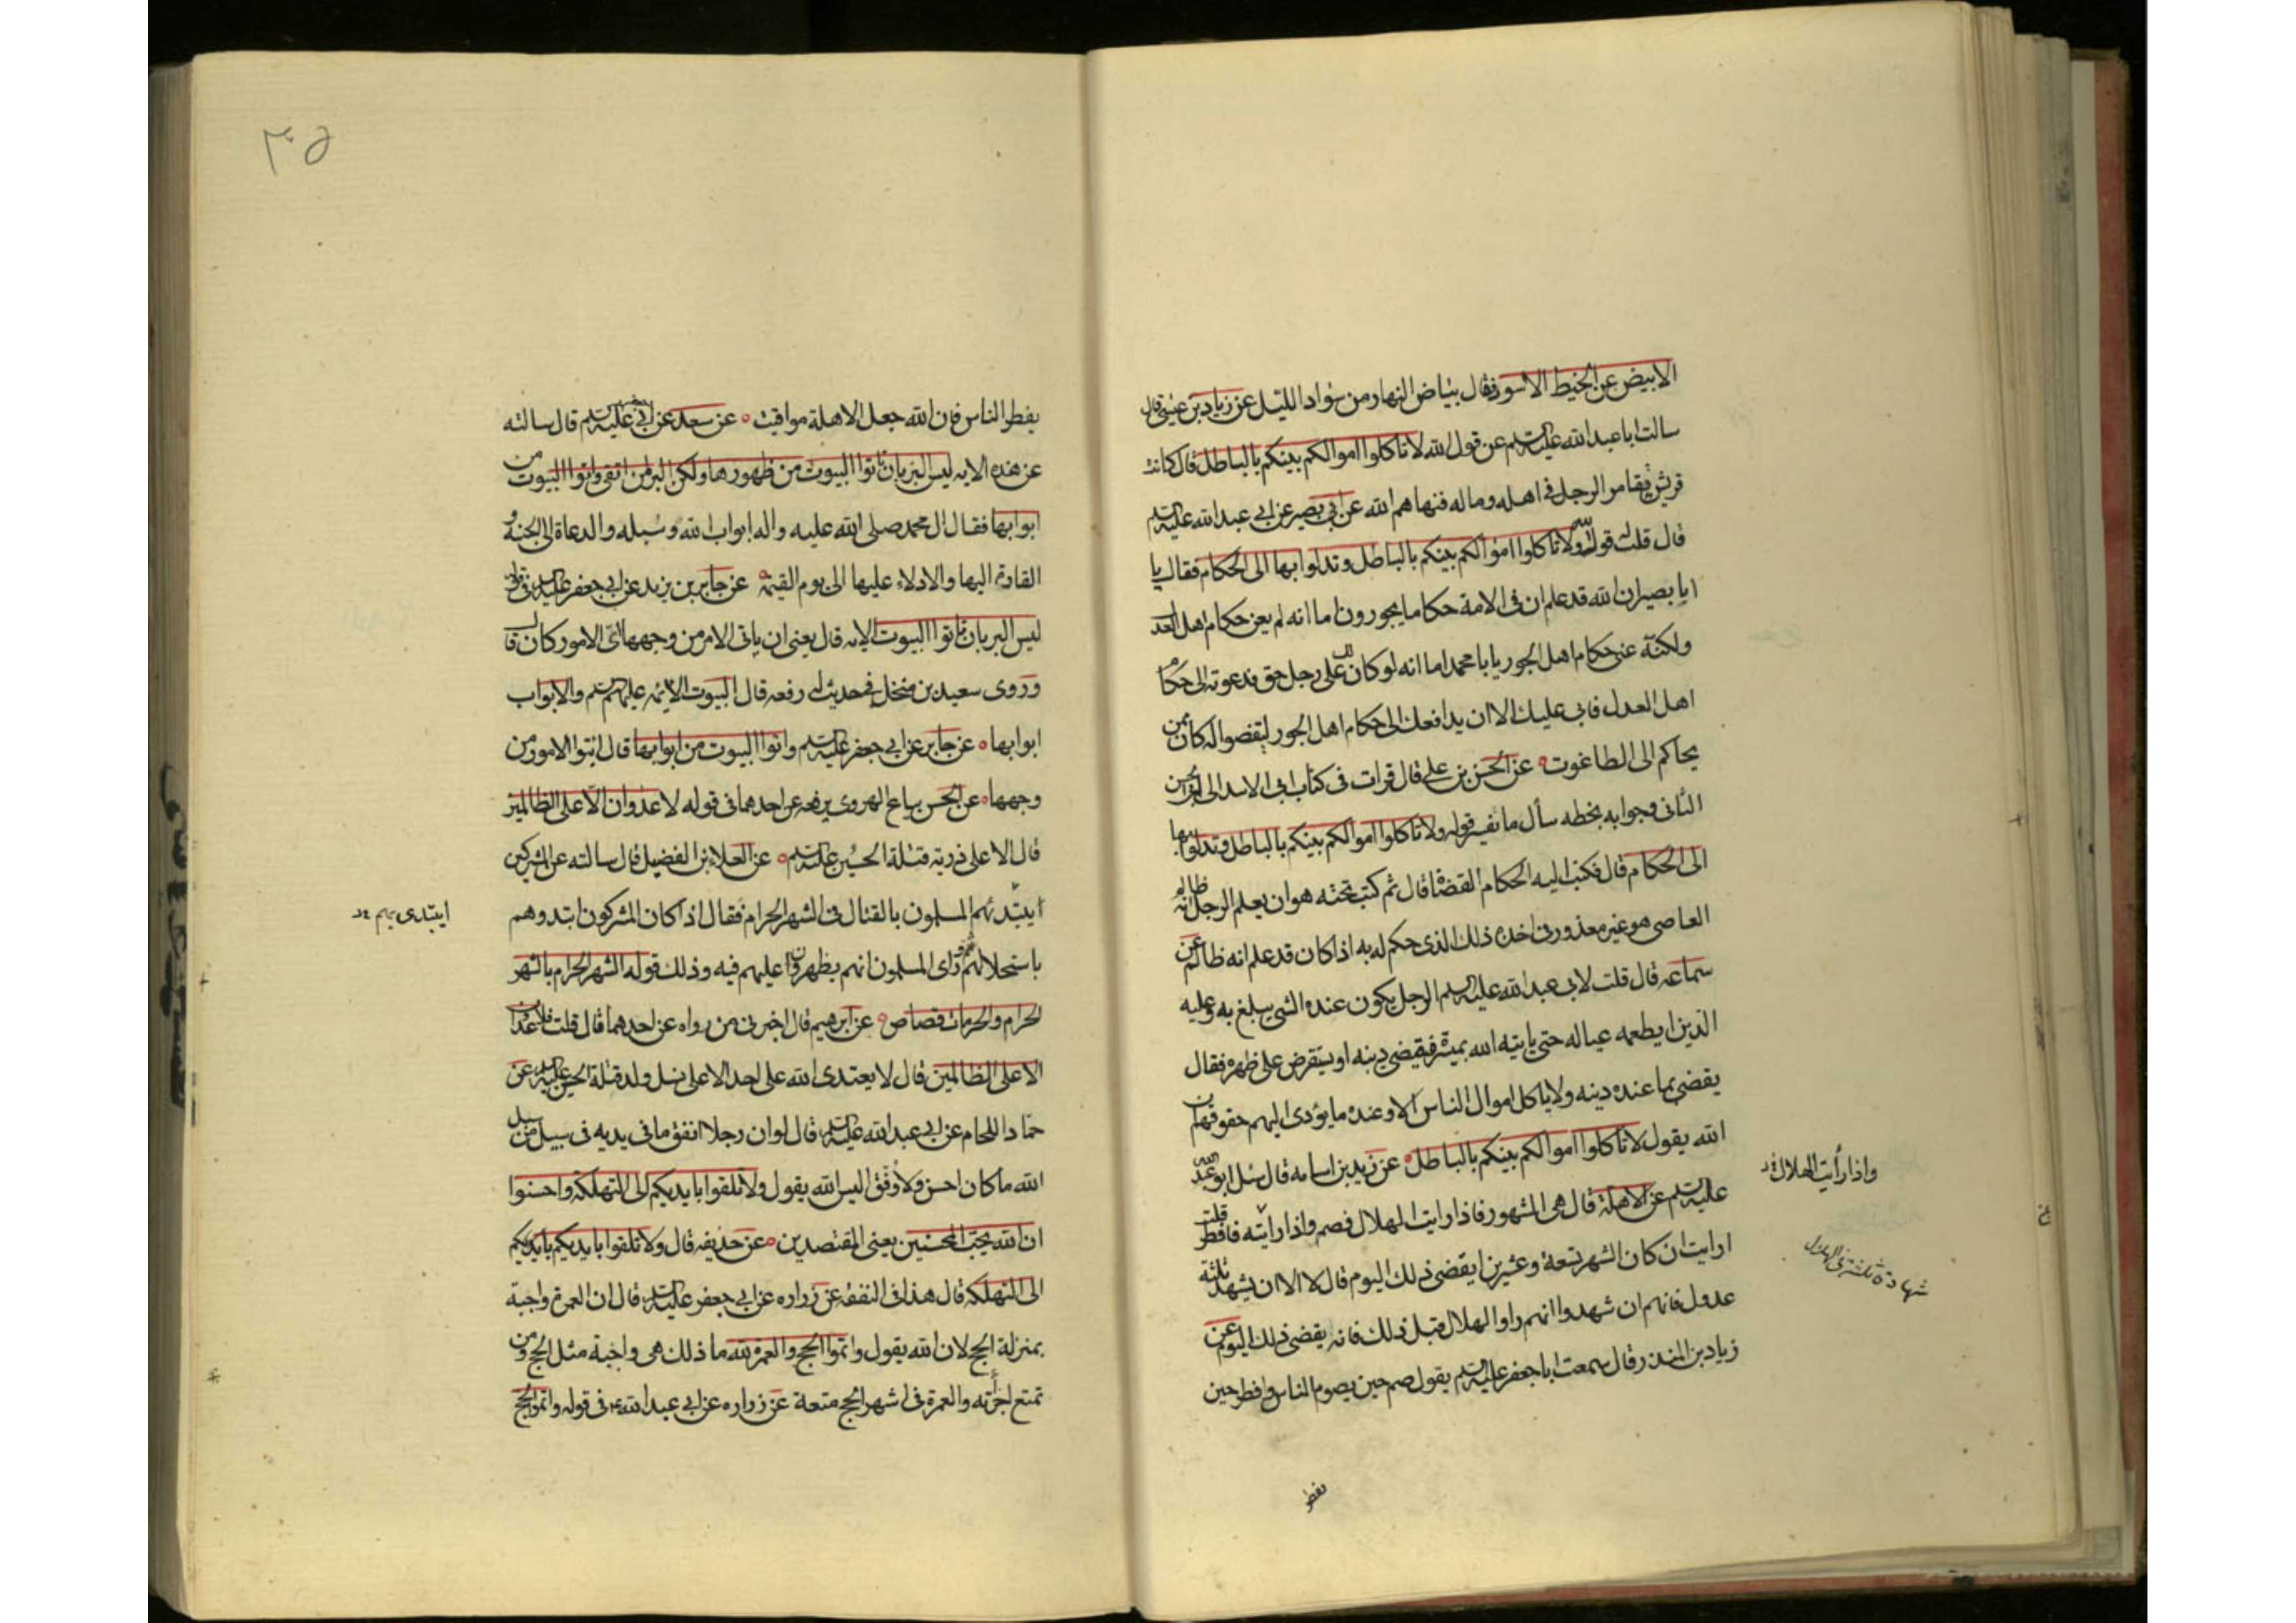 الابيض عن الخيط الاسود فقال بياض النهار من سواد الليل عن زياد بن عيسى قال
سالت ابا عبد الله عليه السلم عن قول الله لا تاكلوا اموالكم بينكم بالباطل قال كانت
قريش يقامر الرجل فى اهله وماله فنهاهم الله عن ابى بصير عن ابى عبد الله عليه السلم
قال قلت قول الله ولا تاكلوا اموالكم بينكم بالباطل وتدلوا بها الى الحكام فقال يا
ابا بصير ان الله قد علم ان فى الامة حكاما يجورون اما انه لم يعن حكام اهل العد
ولكنه عنى حكام اهل الجور يا با محمد اما انه لو كان لك على رجل حق فدعوته الى حكام
اهل العدل فابى عليك الا ان يدافعك الى حكام اهل الجور ليقضوا له كان ممن
يحاكم الى الطاغوت عن الحسن بن على قال قرات فى كتاب ابى الاسد الى ابى الحسن
الثانى وجوابه بخطه سأل ما تفسير قوله ولا تاكلوا اموالكم بينكم بالباطل وتدلوا بها
الى الحكام قال فكتب اليه الحكام القضاة قال ثم كتب تحته هو ان يعلم الرجل انه ظالم
العاصى هو غير معذور فى اخذه ذلك الذى حكم له به اذا كان قد علم انه ظالم عن
سماعه قال قلت لابى عبد الله عليه السلم الرجل يكون عنده الشى يبلغ به وعليه
الدين ايطعمه عياله حتى ياتيه الله بميسرة فيقضى دينه او يستقرض على ظهره فقال
يقضى بما عنده دينه ولا ياكل اموال الناس الا وعنده ما يؤدى اليهم حقوقهم ان
الله يقول لا تاكلوا اموالكم بينكم بالباطل عن زيد بن اسامه قال سئل ابو عبد الله
عليه السلم عن الاهلة قال هى الشهور فاذا رايت الهلال فصم واذا رايته فافطر قلت
ارايت ان كان الشهر تسعة وعشرين ايقضى ذلك اليوم قال لا الا ان يشهد ثلثة
عدول فانهم ان شهدوا انهم راوا الهلال قبل ذلك فانه يقضى ذلك اليوم عن
زياد بن المنذر قال سمعت ابا جعفر عليه السلم يقول صم حين يصوم الناس وافطر حين
واذا رأيت الهلال
شهادة ثلثة فى الهلال
يفطر
٣٥
يفطر الناس فان الله جعل الاهلة مواقيت عن سعد عن ابى جعفر عليه السلم قال سالته
عن هذه الايه ليس البر بان تاتوا البيوت من ظهورها ولكن البر من اتقى واتوا البيوت من
ابوابها فقال ال محمد صلى الله عليه واله ابواب الله وسبله والدعاة الى الجنة و
القادة اليها والادلاء عليها الى يوم القيمة عن جابر بن يزيد عن ابى جعفر عليه السلم فى قوله
ليس البر بان تاتوا البيوت الايه قال يعنى ان ياتى الامر من وجهها اى الامور كان قال
وروى سعيد بن منخل فى حديث له رفعه قال البيوت الائمه عليهم السلم والابواب
ابوابها عن جابر عن ابى جعفر عليه السلم واتوا البيوت من ابوابها قال ائتوا الامور من
وجهها عن الحسن بياع الهروى يرفعه عن احدهما فى قوله لا عدوان الا على الظالمين
قال الا على ذرية قتلة الحسين عليه السلم عن العلاء بن الفضيل قال سالته عن المشركين
أيبتدئهم المسلمون بالقتال فى الشهر الحرام فقال اذا كان المشركون ابتدوهم
باستحلالهم ثم راى المسلمون انهم يظهرون عليهم فيه وذلك قوله الشهر الحرام بالشهر
الحرام والحرمات قصاص عن ابرهيم قال اخبرنى من رواه عن احدهما قال قلت فلا عدوان
الا على الظالمين قال لا يعتدى الله على احد الا على نسل ولد قتلة الحسين عليه السلم عن
حماد اللحام عن ابى عبد الله عليه السلم قال لو ان رجلا انفق ما فى يديه فى سبيل من سبيل
الله ما كان احسن ولا وفق اليس الله يقول ولا تلقوا بايديكم الى التهلكة واحسنوا
ان الله يحب المحسنين يعنى المقتصدين عن حذيفه قال ولا تلقوا بايديكم بايديكم
الى التهلكه قال هذا فى النفقه عن زراره عن ابى جعفر عليه السلم قال ان العمرة واجبة
بمنزلة الحج لان الله يقول واتموا الحج والعمرة لله ما ذلك هى واجبة مثل الحج ومن
تمتع اجزأته والعمرة فى اشهر الحج متعة عن زراره عن ابى عبد الله ع فى قوله واتموا الحج
ايبتدى بهم